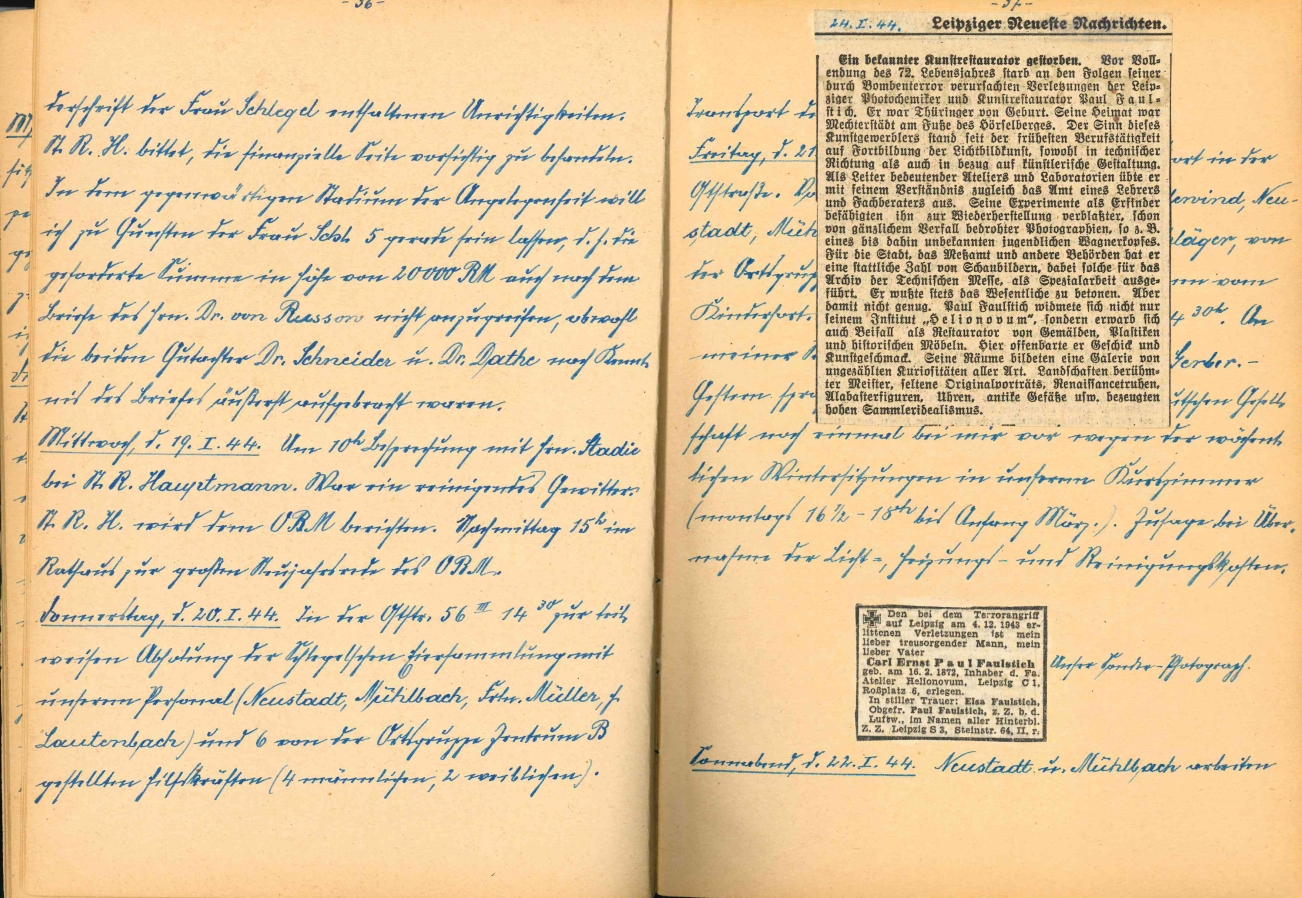 - 36 -
derschrift der Frau Schlegel enthaltenen Unrichtigkeiten.
St. R. H. bittet, die finanzielle Seite vorsichtig zu behandeln.
In dem gegenwärtigen Stadium der Angelegenheit will
ich zu Gunsten der Frau Schl. 5 gerade sein lassen, d. h. die
geforderte Summe in Höhe von 20000 RM auch nach dem
Briefe des Hrn. Dr. von Russow nicht anzugreifen, obwohl
die beiden Gutachter Dr. Schneider u. Dr. Dathe nach Kennt-
nis des Briefes äußerst aufgebracht waren.
Mittwoch, d. 19. I. 44. Um 10h Besprechung mit Hrn. Stadie
bei St. R. Hauptmann. War ein reinigendes Gewitter.
St. R. H. wird dem OBM berichten. Nachmittag 15h im
Rathaus zur großen Neujahrsrede des OBM.
Donnerstag, d. 20. I. 44. In der Oststr. 56 III 14 30 zur teil-
weisen Abholung der Schlegelschen Eiersammlung mit
unserem Personal (Neustadt, Mühlbach, Frln. Müller, H.
Lautenbach) und 6 von der Ortsgruppe Zentrum B
gestellten Hilfskräften (4 männlichen, 2 weiblichen).
- 37 -
24. I. 44. Leipziger Neueste Nachrichten.
Ein bekannter Kunstrestaurator gestorben. Vor Voll-
endung des 72. Lebensjahres starb an den Folgen seiner
durch Bombenterror verursachten Verletzungen der Leip-
ziger Photochemiker und Kunstrestaurator Paul Faul-
stich. Er war Thüringer von Geburt. Seine Heimat war
Mechterstädt am Fuße des Hörselberges. Der Sinn dieses
Kunstgewerblers stand seit der frühesten Berufstätigkeit
auf Fortbildung der Lichtbildkunst, sowohl in technischer
Richtung als auch in bezug auf künstlerische Gestaltung.
Als Leiter bedeutender Ateliers und Laboratorien übte er
mit seinem Verständnis zugleich das Amt eines Lehrers
und Fachberaters aus. Seine Experimente als Erfinder
befähigten ihn zur Wiederherstellung verblaßter, schon
von gänzlichem Verfall bedrohter Photographien, so z. B.
eines bis dahin unbekannten jugendlichen Wagnerkopfes.
Für die Stadt, das Meßamt und andere Behörden hat er
eine stattliche Zahl von Schaubildern, dabei solche für das
Archiv der Technischen Messe, als Spezialarbeit ausge-
führt. Er wußte stets das Wesentliche zu betonen. Aber
damit nicht genug. Paul Faulstich widmete sich nicht nur
seinem Institut „Helionovum“, sondern erwarb sich
auch Beifall als Restaurator von Gemälden, Plastiken
und historischen Möbeln. Hier offenbarte er Geschick und
Kunstgeschmack. Seine Räume bildeten eine Galerie von
ungezählten Kuriositäten aller Art. Landschaften berühm-
ter Meister, seltene Originalporträts, Renaissancetruhen,
Alabasterfiguren, Uhren, antike Gefäße usw. bezeugten
hohen Sammleridealismus.
Transport d
Freitag, d. 21 ort in der
Oststraße. Neu-
stadt, Müh läger, von
der Ortsgrup vom
Kinderhort. 4 30h. An
meiner Gerber. -
Gestern spra utschen Gesell-
schaft noch einmal bei mir vor wegen der wöchent-
lichen Wintersitzungen in unserem Kurszimmer
(montags 16 1/2 - 18h bis Anfang März.). Zusage bei Über-
nahme der Licht-, Heizungs- und Reinigungskosten.
Den bei dem Terrorangriff
auf Leipzig am 4. 12. 1943 er-
littenen Verletzungen ist mein
lieber treusorgender Mann, mein
lieber Vater
Carl Ernst Paul Faulstich
geb. am 16. 2. 1872, Inhaber d. Fa.
Atelier Helionovum, Leipzig C 1,
Roßplatz 6, erlegen.
In stiller Trauer: Elsa Faulstich,
Obgefr. Paul Faulstich, z. Z. b. d.
Luftw., im Namen aller Hinterbl.
Z. Z. Leipzig S 3, Steinstr. 64, II, r.
Unser Sonder-Photograph.
Sonnabend, d. 22. I. 44. Neustadt u. Mühlbach arbeiten